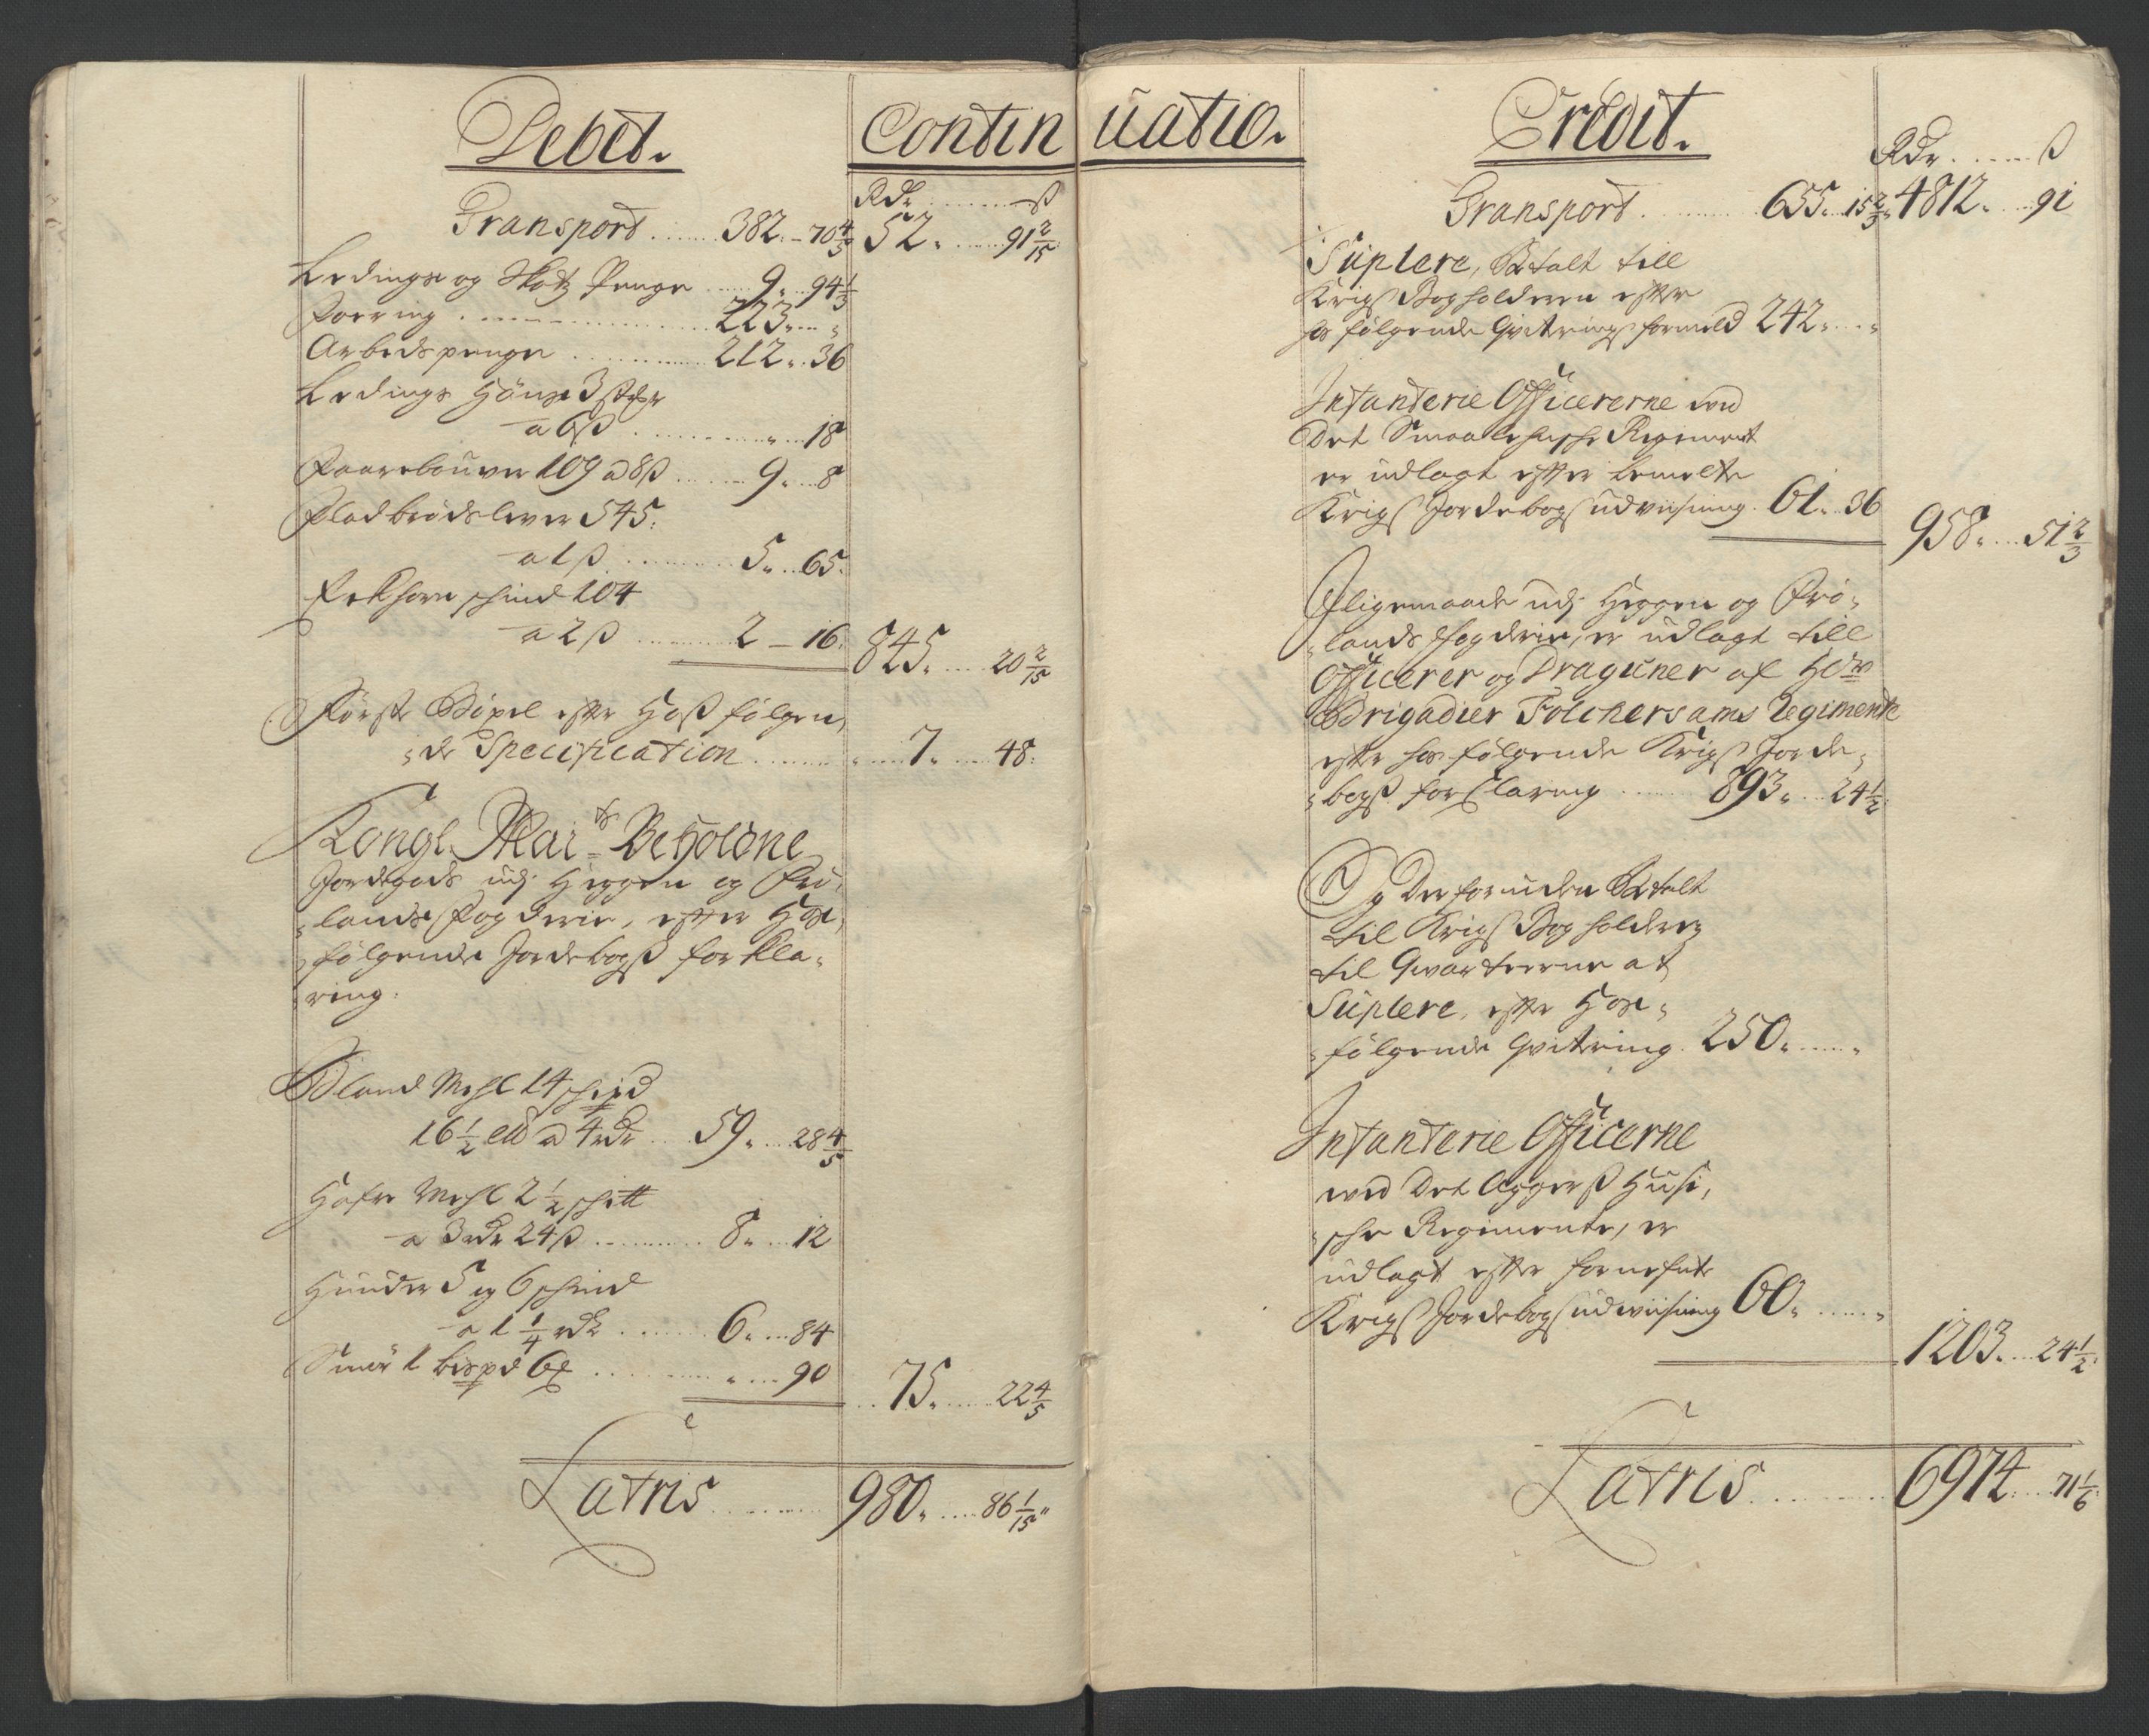 Debet.
Continuatio.
Rdr ß
Transport 382. – 70 4/5 52. 91 2/15
Ledings og Skatz Penge 9. 94 1/3
Foering 223. „
Arbedspenge 212. 36
Ledings Höns 3 stkr
a 6 ß „ 18
Faarebouver 109 a 8 ß 9. 8
Fladbrödslever 545.
a 1 ß 5. 65.
Eekhorn schind 104
a 2 ß 2 – 16. 845. 20 2/15
Förste Böxel efter Hoß fölgen„
„de Specification 7. 48.
Kongl. Mai ts Beholdne
Jordegods udj Heggen og Frö„
„lands Fogderie, efter Hos„
„fölgende Jordebogß forkla„
ring.
Bland Mehl 14 schipd
16 1/2 a 4 rdr 59. 28 4/5
Hafre Mehl 2 1/2 schitt
a 3 rdr 24 ß 8. 12
Huuder 5 og 6 schind
a 1 1/4 rdr 6. 84
Smör 1 bispd 6 „ 90 75. 22 4/5
Latris 980. 86 1/15 „
Credit.
Rdr ß
Transport 655. 15 2/3 4812. 91
Suplere, Betalt till
Krigs Bogholderen efter
hos fölgende Qvitterings formeld 242. „
Infanterie Officererne ved
Det Smaalehnsche Regiment
er udlagt efter bemelte
Krigs Jordebogs udviisning 61. 36 958. 51 2/3
Jligemaade udj Heggen og Frö„
„lands Fogderie, er udlagt till
Officerer og Draguner af Hdr
Brigadier Fölchersams Regimente
efter hos fölgende Krigs Jorde„
„bogß forklaring 893. 24 1/2
Og Der foruden Betalt
til Krigs Bogholderen
til Qvarteerne at
Suplere, efter Hos„
„fölgende Qvitering 250. „
Infanterie Officerne
ved Det Aggerß Husi„
„sche Regimente, er
udlagt efter fornefnte
Krigs Jordebogs udwiisning 60. „
1203. 24 1/2
Latris 6974. 71 1/6